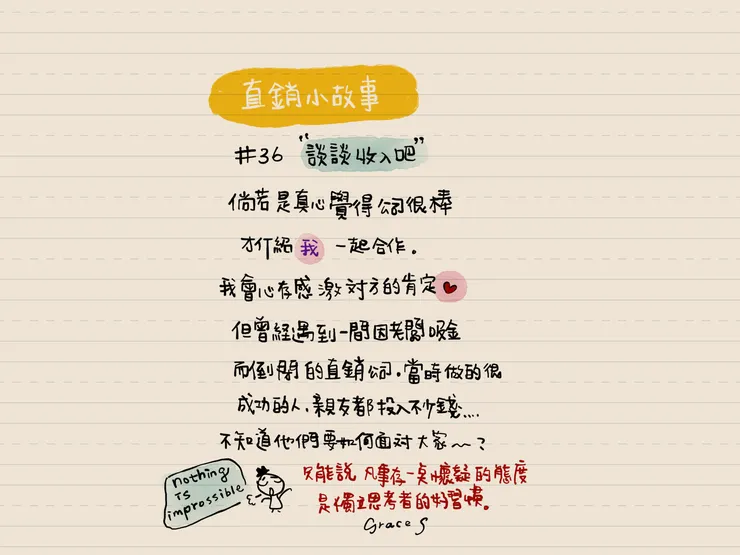 直銷小故事
#36 "談談收入吧"
倘若是真心覺得公司很棒
才介紹我一起合作.
我會心存感激對方的肯定
但曾經遇到一間因老闆吸金
而倒閉的直銷公司.當時做的很
成功的人,親友都投入不少錢....
不知道他們要如何面對大家~?
只能說 凡事存一點懷疑的態度
是獨立思考者的好習慣。
nothing
Is
improssible
Grace S